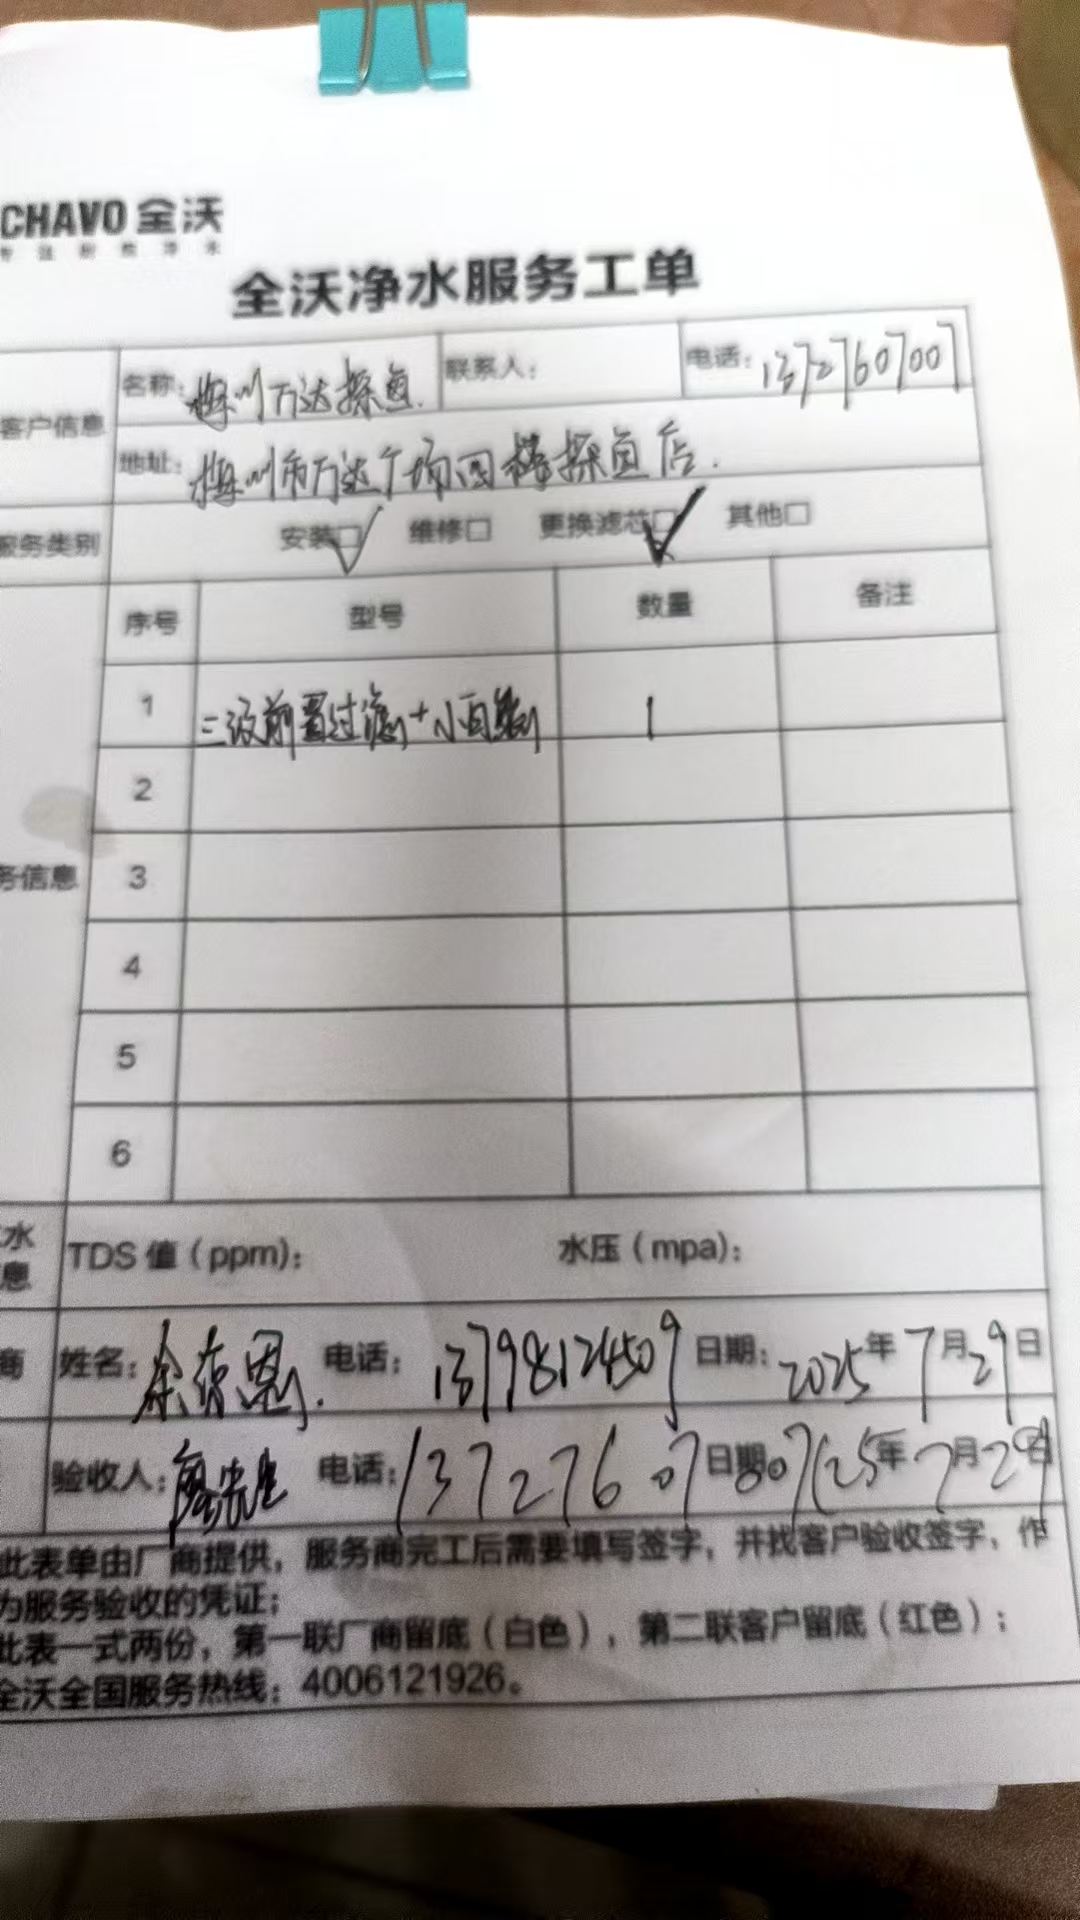 CHAVO 全沃
专注新概净水
全沃净水服务工单
客户信息 名称: 梅州万达探鱼. 联系人: 电话: 13727607007
地址: 梅州市万达广场四楼探鱼店.
服务类别 安装☑ 维修□ 更换滤芯☑ 其他□
序号 型号 数量 备注
1 三级前置过滤+小白 1
2
务信息 3
4
5
6
水 息 TDS 值（ppm）: 水压（mpa）:
商 姓名: 余 电话: 13798124509 日期: 2025年7月29日
验收人: 廖先生 电话: 137276 07 日期: 25年7月29日
此表单由厂商提供，服务商完工后需要填写签字，并找客户验收签字，作
为服务验收的凭证；
此表一式两份，第一联厂商留底（白色），第二联客户留底（红色）；
全沃全国服务热线：4006121926。